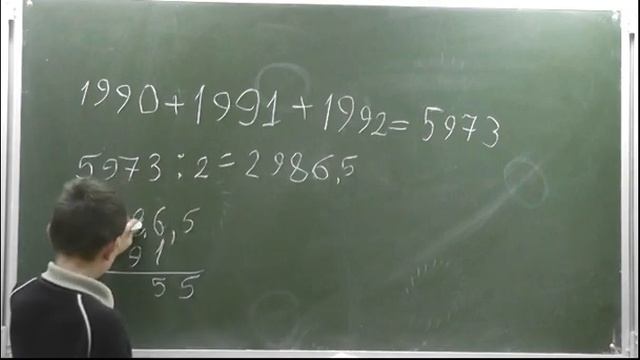 1990+1991+1992=5973
5973:2=2986,5
6,5
91
55